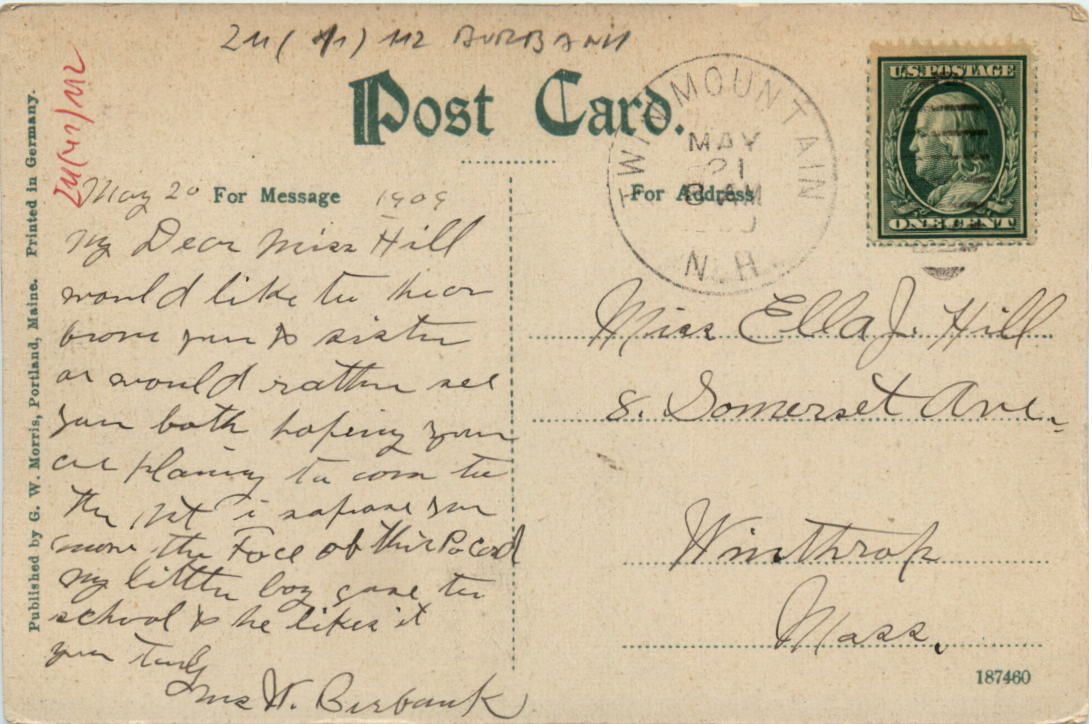 BURBANK
Post Card.
TWIN MOUNTAIN
MAY
21
8 AM
N.H.
U.S. POSTAGE
ONE CENT
For Message
For Address
Published by G. W. Morris, Portland, Maine. Printed in Germany.
May 20 1909
My Dear Miss Hill
would like to hear
from you & sister
or would rather see
you both hoping you
are planing to com to
the Mt i sapose you
know the Face ob this Pocard
my little boy gone to
school & he likes it
your truly
W. Burbank
Miss Ella J. Hill
8. Somerset Ave.
Winthrop
Mass.
187460